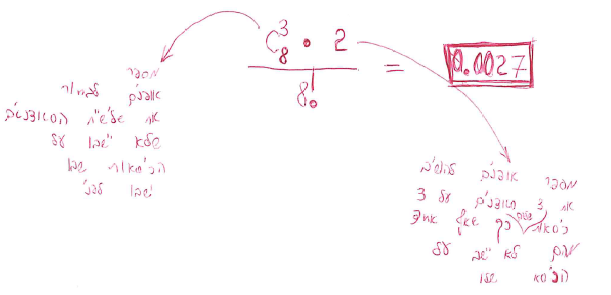 C₈³ · 2 / 8! = 0.0027
מספר
אופנים לבחור
את שלישיית הסטודנטים
שלא ישבו על
הכיסאות שבו
ישבו לפני
מספר אופנים להושיב
את 3 הסטודנטים על 3
כיסאות כך שאף אחד
מהם לא ישב על
הכיסא שלו